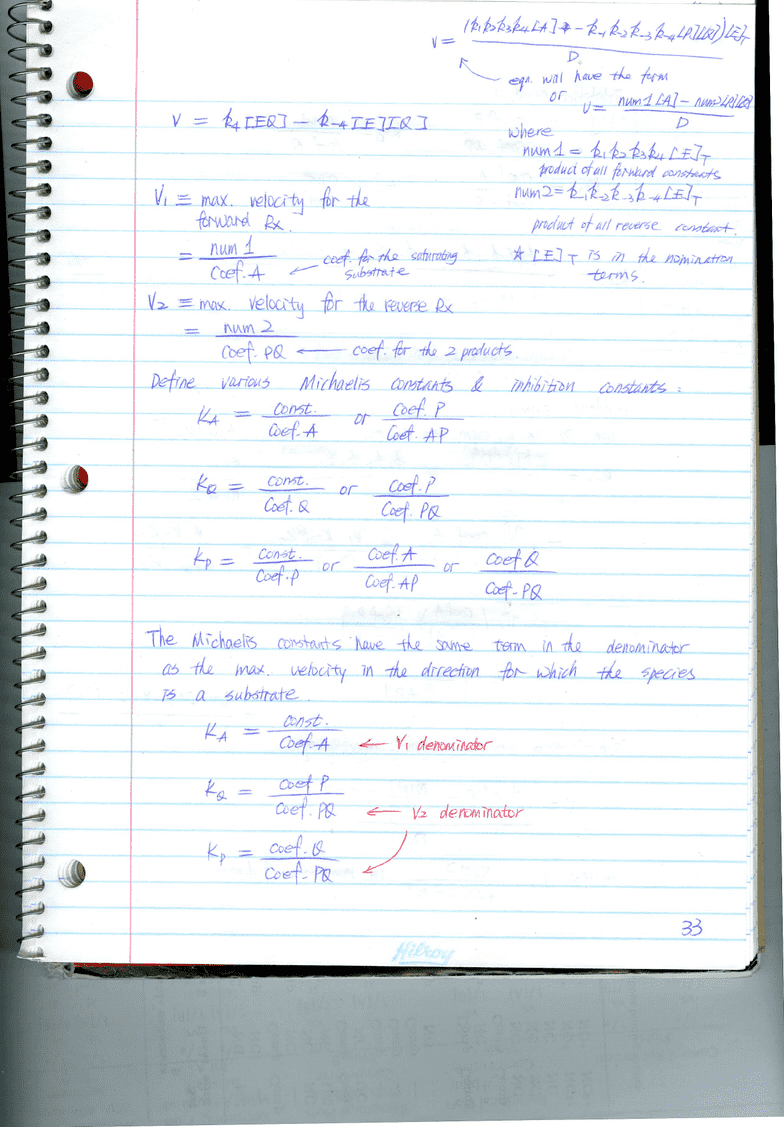 v = (k₁k₂k₃k₄[A] - k₋₁k₋₂k₋₃k₋₄[P][Q])[E]T / D
eqn. will have the form
or v = num1[A] - num2[P][Q] / D
v = k₄[EQ] - k₋₄[E][Q]
where
num1 = k₁k₂k₃k₄[E]T
product of all forward constants
num2 = k₋₁k₋₂k₋₃k₋₄[E]T
product of all reverse constant.
* [E]T is in the nomination
terms.
V₁ ≡ max. velocity for the
forward Rx.
= num 1 / Coef. A ← coef. for the saturating
substrate
V₂ ≡ max. velocity for the reverse Rx
= num 2 / Coef. PQ ← coef. for the 2 products.
Define various Michaelis constants & inhibition constants:
KA = const. / Coef. A or Coef. P / Coef. AP
KQ = const. / Coef. Q or Coef. P / Coef. PQ
KP = const. / Coef. P or Coef. A / Coef. AP or Coef Q / Coef. PQ
The Michaelis constants have the same term in the denominator
as the max. velocity in the direction for which the species
is a substrate.
KA = const. / Coef. A ← V₁ denominator
KQ = coef P / Coef. PQ ← V₂ denominator
KP = coef. Q / Coef. PQ
33
Hilroy